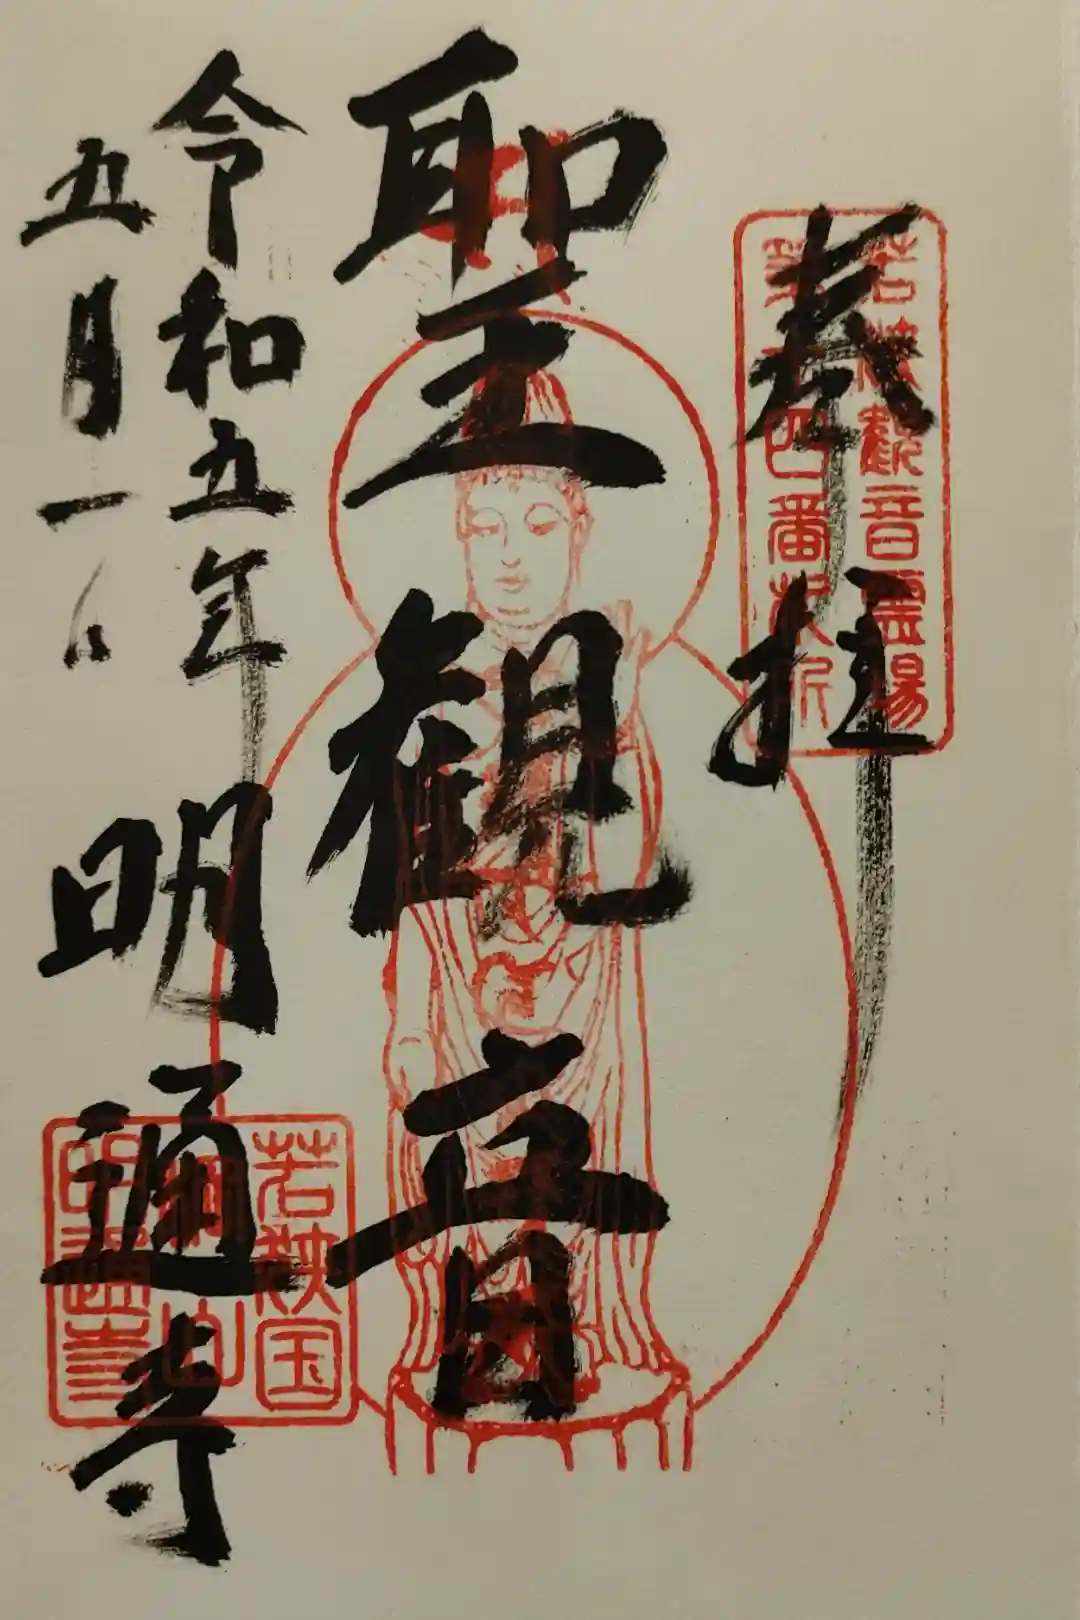 奉拝
若狭観音霊場
四番札所
聖観音
令和五年
五月一日
明通寺
若狭国
山
明通寺